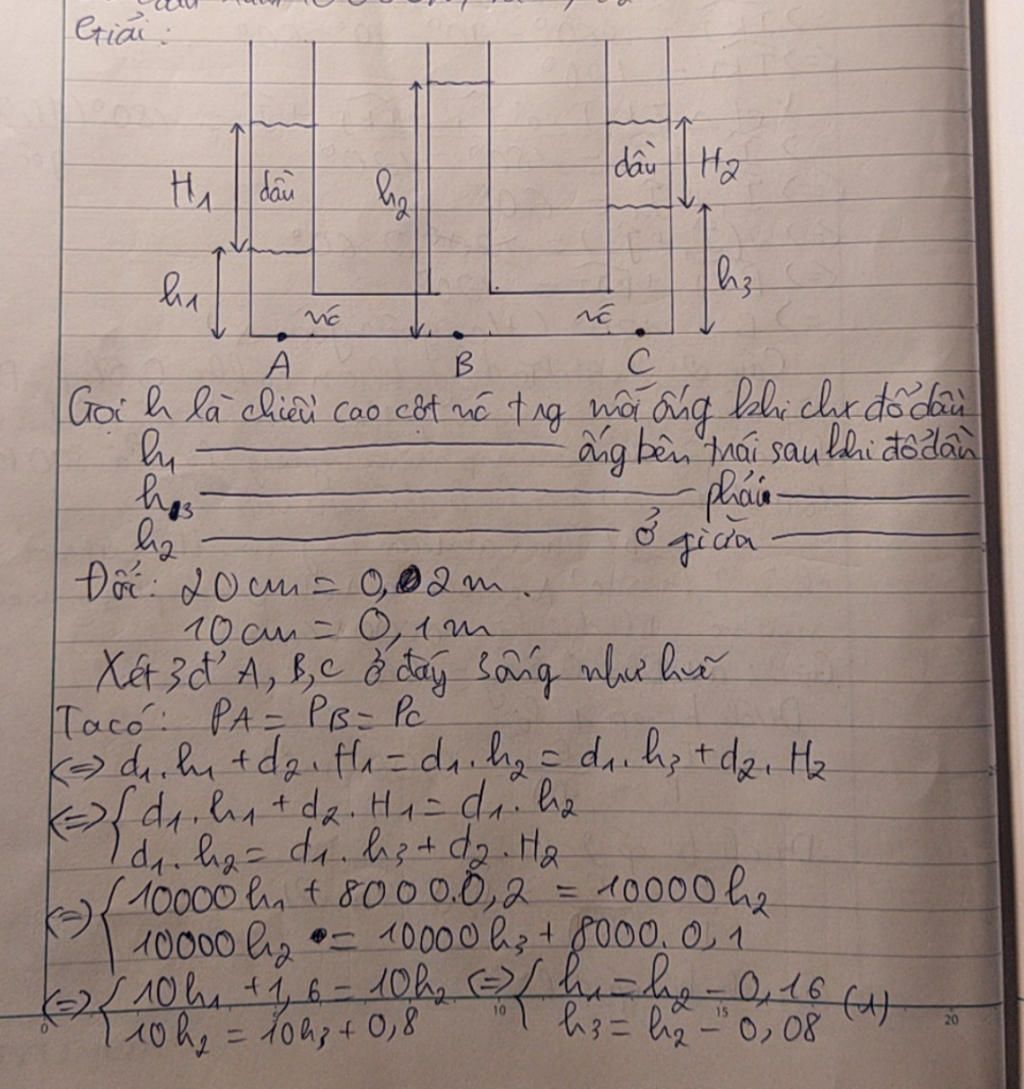 Giải:
dầu
dầu
H₁
h₂
H₂
h₁
h₃
nc
nc
A
B
C
Gọi h là chiều cao cột nc tng mỗi ống khi chx đổ dầu
h₁ ống bên trái sau khi đổ dầu
h₃ phải
h₂ ở giữa
Đổi: 20cm = 0,2m.
10cm = 0,1m
Xét 3đ' A, B, C ở đáy 3 ống như hvẽ
Ta có: PA = PB = PC
<=> d₁.h₁ + d₂.H₁ = d₁.h₂ = d₁.h₃ + d₂.H₂
<=> { d₁.h₁ + d₂.H₁ = d₁.h₂
d₁.h₂ = d₁.h₃ + d₂.H₂
<=> { 10000h₁ + 8000.0,2 = 10000h₂
10000h₂ = 10000h₃ + 8000.0,1
<=> { 10h₁ + 1,6 = 10h₂ <=> { h₁ = h₂ - 0,16 (1)
10h₂ = 10h₃ + 0,8 h₃ = h₂ - 0,08
0 10 15 20